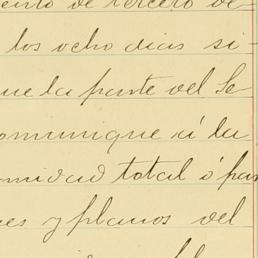 ento de tercero de
los ocho dias si-
que la parte del Se
comunique á la
midad total ó par
es y planos del